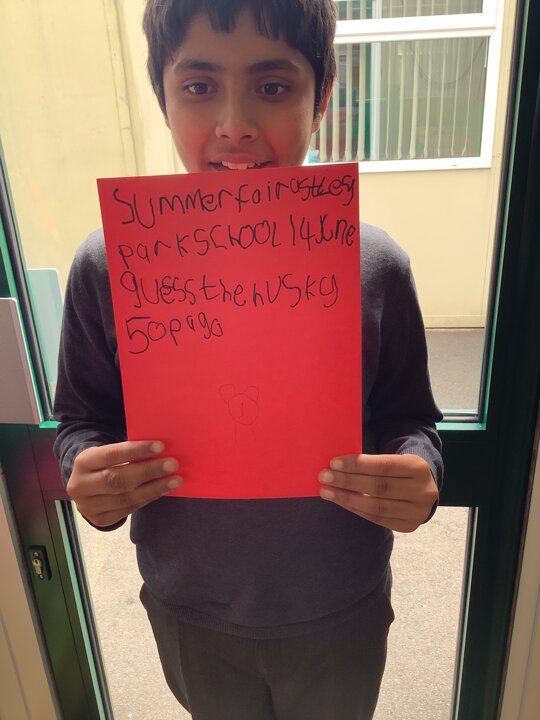 summerfairastley
parkschool 14 June
guessthehusky
50pago